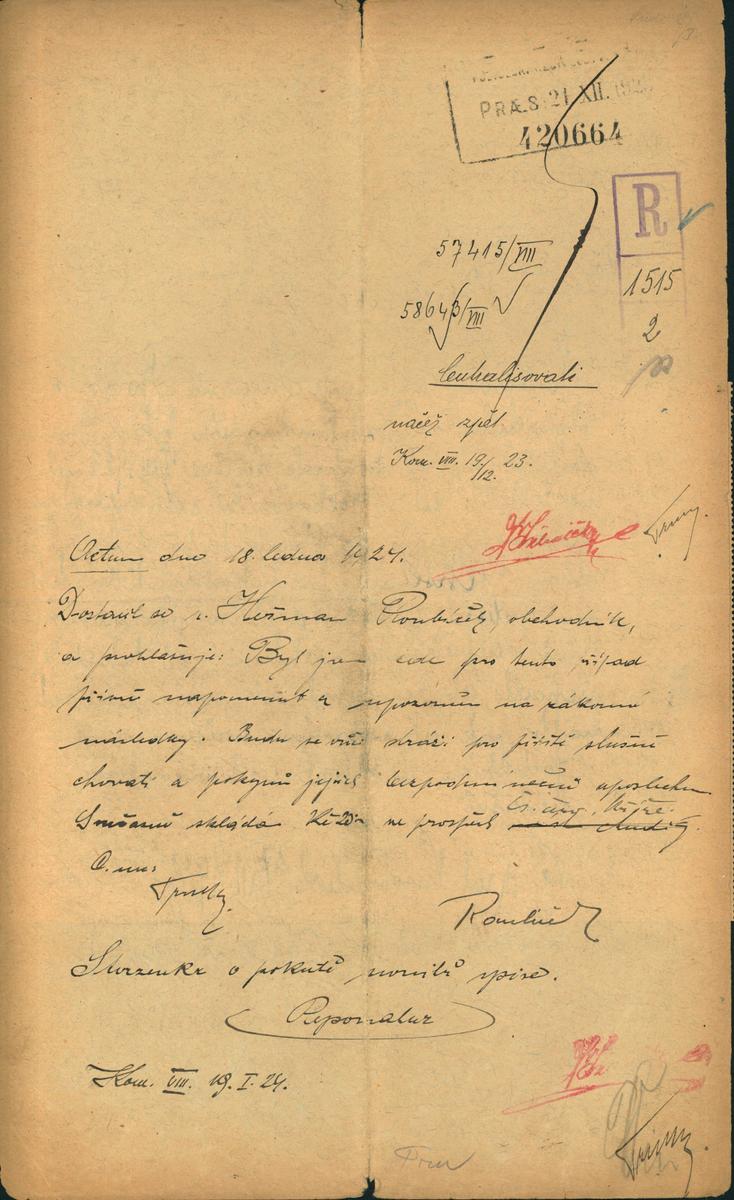 PRÆS. 21. XII. 192
420664
R
1515
2
57415/VIII
58643/VIII
načež zpět.
Kom. VIII. 19/12. 23.
Actum dne 18. ledna 1924.
Dostavil se p. Heřman Roubíček, obchodník,
a prohlašuje: Byl jsem zde pro tento případ
přísně napomenut a upozorněn na zákonné
následky. Budu se vůči stráži pro příště slušně
chovati a pokynů jejích bezpodmínečně uposlechnu.
Současně skládá Kč 20 ve prospěch
Roubíček
Stvrzenka o pokutě uvnitř spisu.
Reponatur
Kom. VIII. 19. I. 24.